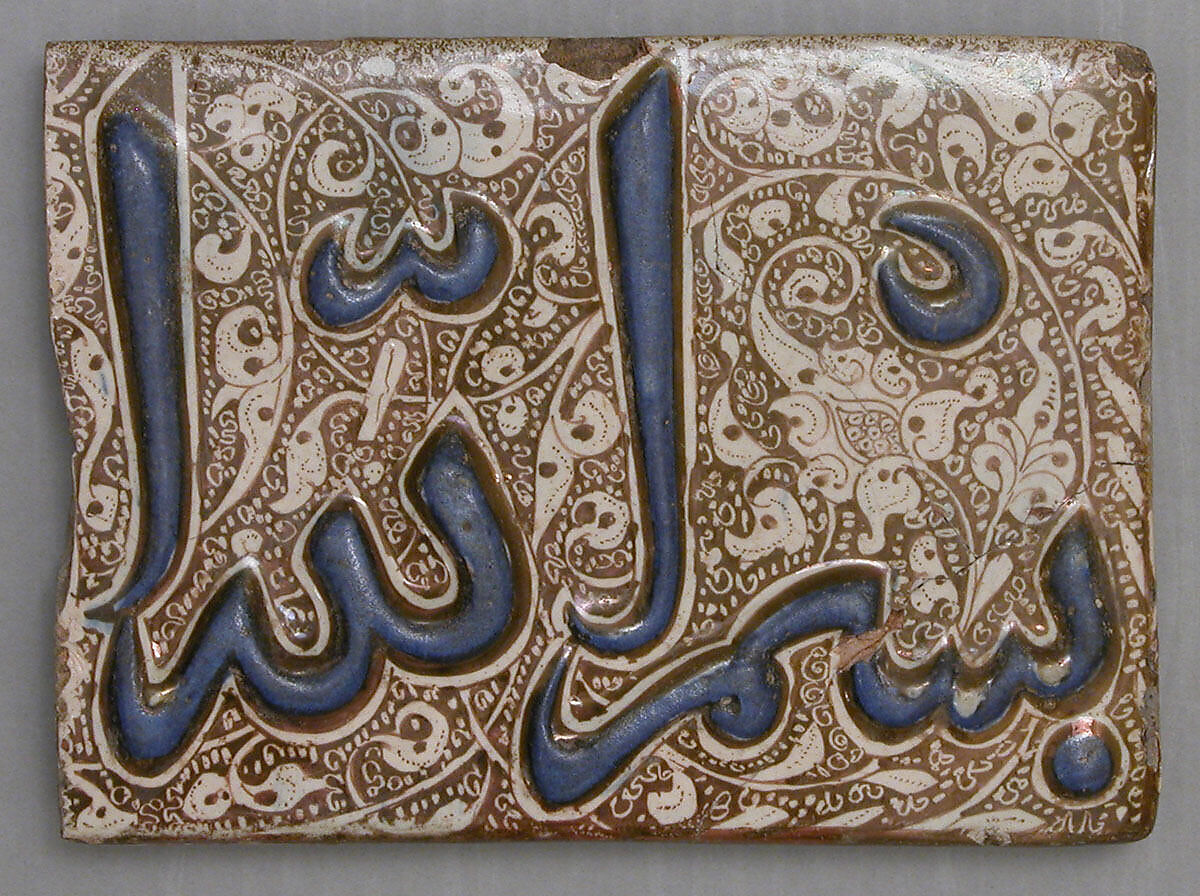 بسم اللّه ا